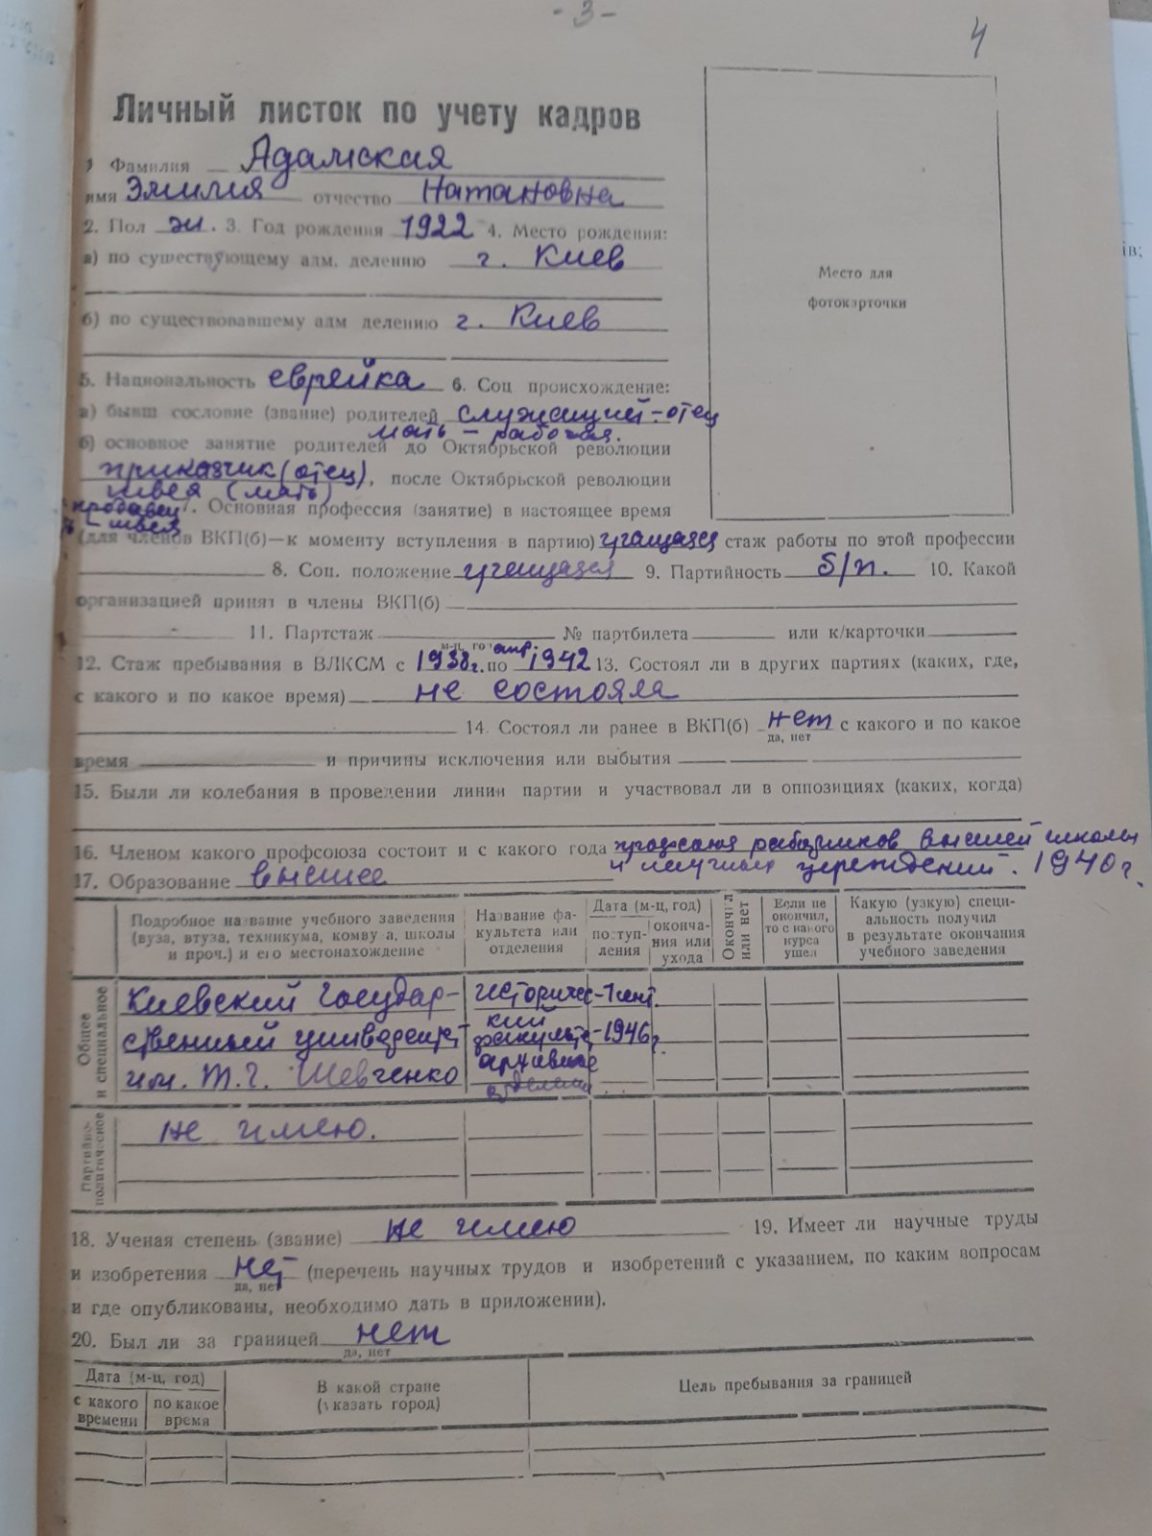 - 3 -
4
Личный листок по учету кадров
1 Фамилия Адамская
имя Эмилия отчество Натановна
2. Пол ж. 3. Год рождения 1922 4. Место рождения:
а) по существующему адм. делению г. Киев
б) по существовавшему адм делению г. Киев
Место для
фотокарточки
5. Национальность еврейка 6. Соц происхождение:
а) бывш сословие (звание) родителей служащий - отец
мать - рабочая.
б) основное занятие родителей до Октябрьской революции
приказчик (отец), после Октябрьской революции
швея (мать)
продавец 7. Основная профессия (занятие) в настоящее время
- швея
(для членов ВКП(б)—к моменту вступления в партию) учащаяся стаж работы по этой профессии
8. Соц. положение учащаяся 9. Партийность б/п. 10. Какой
организацией принят в члены ВКП(б)
11. Партстаж № партбилета или к/карточки
м-ц, го
12. Стаж пребывания в ВЛКСМ с 1938г. по апр. 1942 13. Состоял ли в других партиях (каких, где,
с какого и по какое время) не состояла
14. Состоял ли ранее в ВКП(б) нет с какого и по какое
да, нет
время и причины исключения или выбытия
15. Были ли колебания в проведении линии партии и участвовал ли в оппозициях (каких, когда)
16. Членом какого профсоюза состоит и с какого года профсоюз работников высшей школы
и научных учреждений. 1940 г.
17. Образование высшее
Подробное название учебного заведения
(вуза, втуза, техникума, комвуза, школы
и проч.) и его местонахождение
Название фа-
культета или
отделения
Дата (м-ц, год)
поступ-
ления
оконча-
ния или
ухода
Окончил
или нет
Если не
окончил,
то с какого
курса
ушел
Какую (узкую) специ-
альность получил
в результате окончания
учебного заведения
Общее
и специальное
Киевский Государ-
ственный университет
им. Т. Г. Шевченко
историчес-
кий
факультет
архивное
отделение
1 сент.
- 1946 г.
Партийно-
политическое
не имею.
18. Ученая степень (звание) не имею 19. Имеет ли научные труды
и изобретения нет (перечень научных трудов и изобретений с указанием, по каким вопросам
да, нет
и где опубликованы, необходимо дать в приложении).
20. Был ли за границей нет
да, нет
Дата (м-ц, год)
с какого
времени
по какое
время
В какой стране
(указать город)
Цель пребывания за границей
ів;